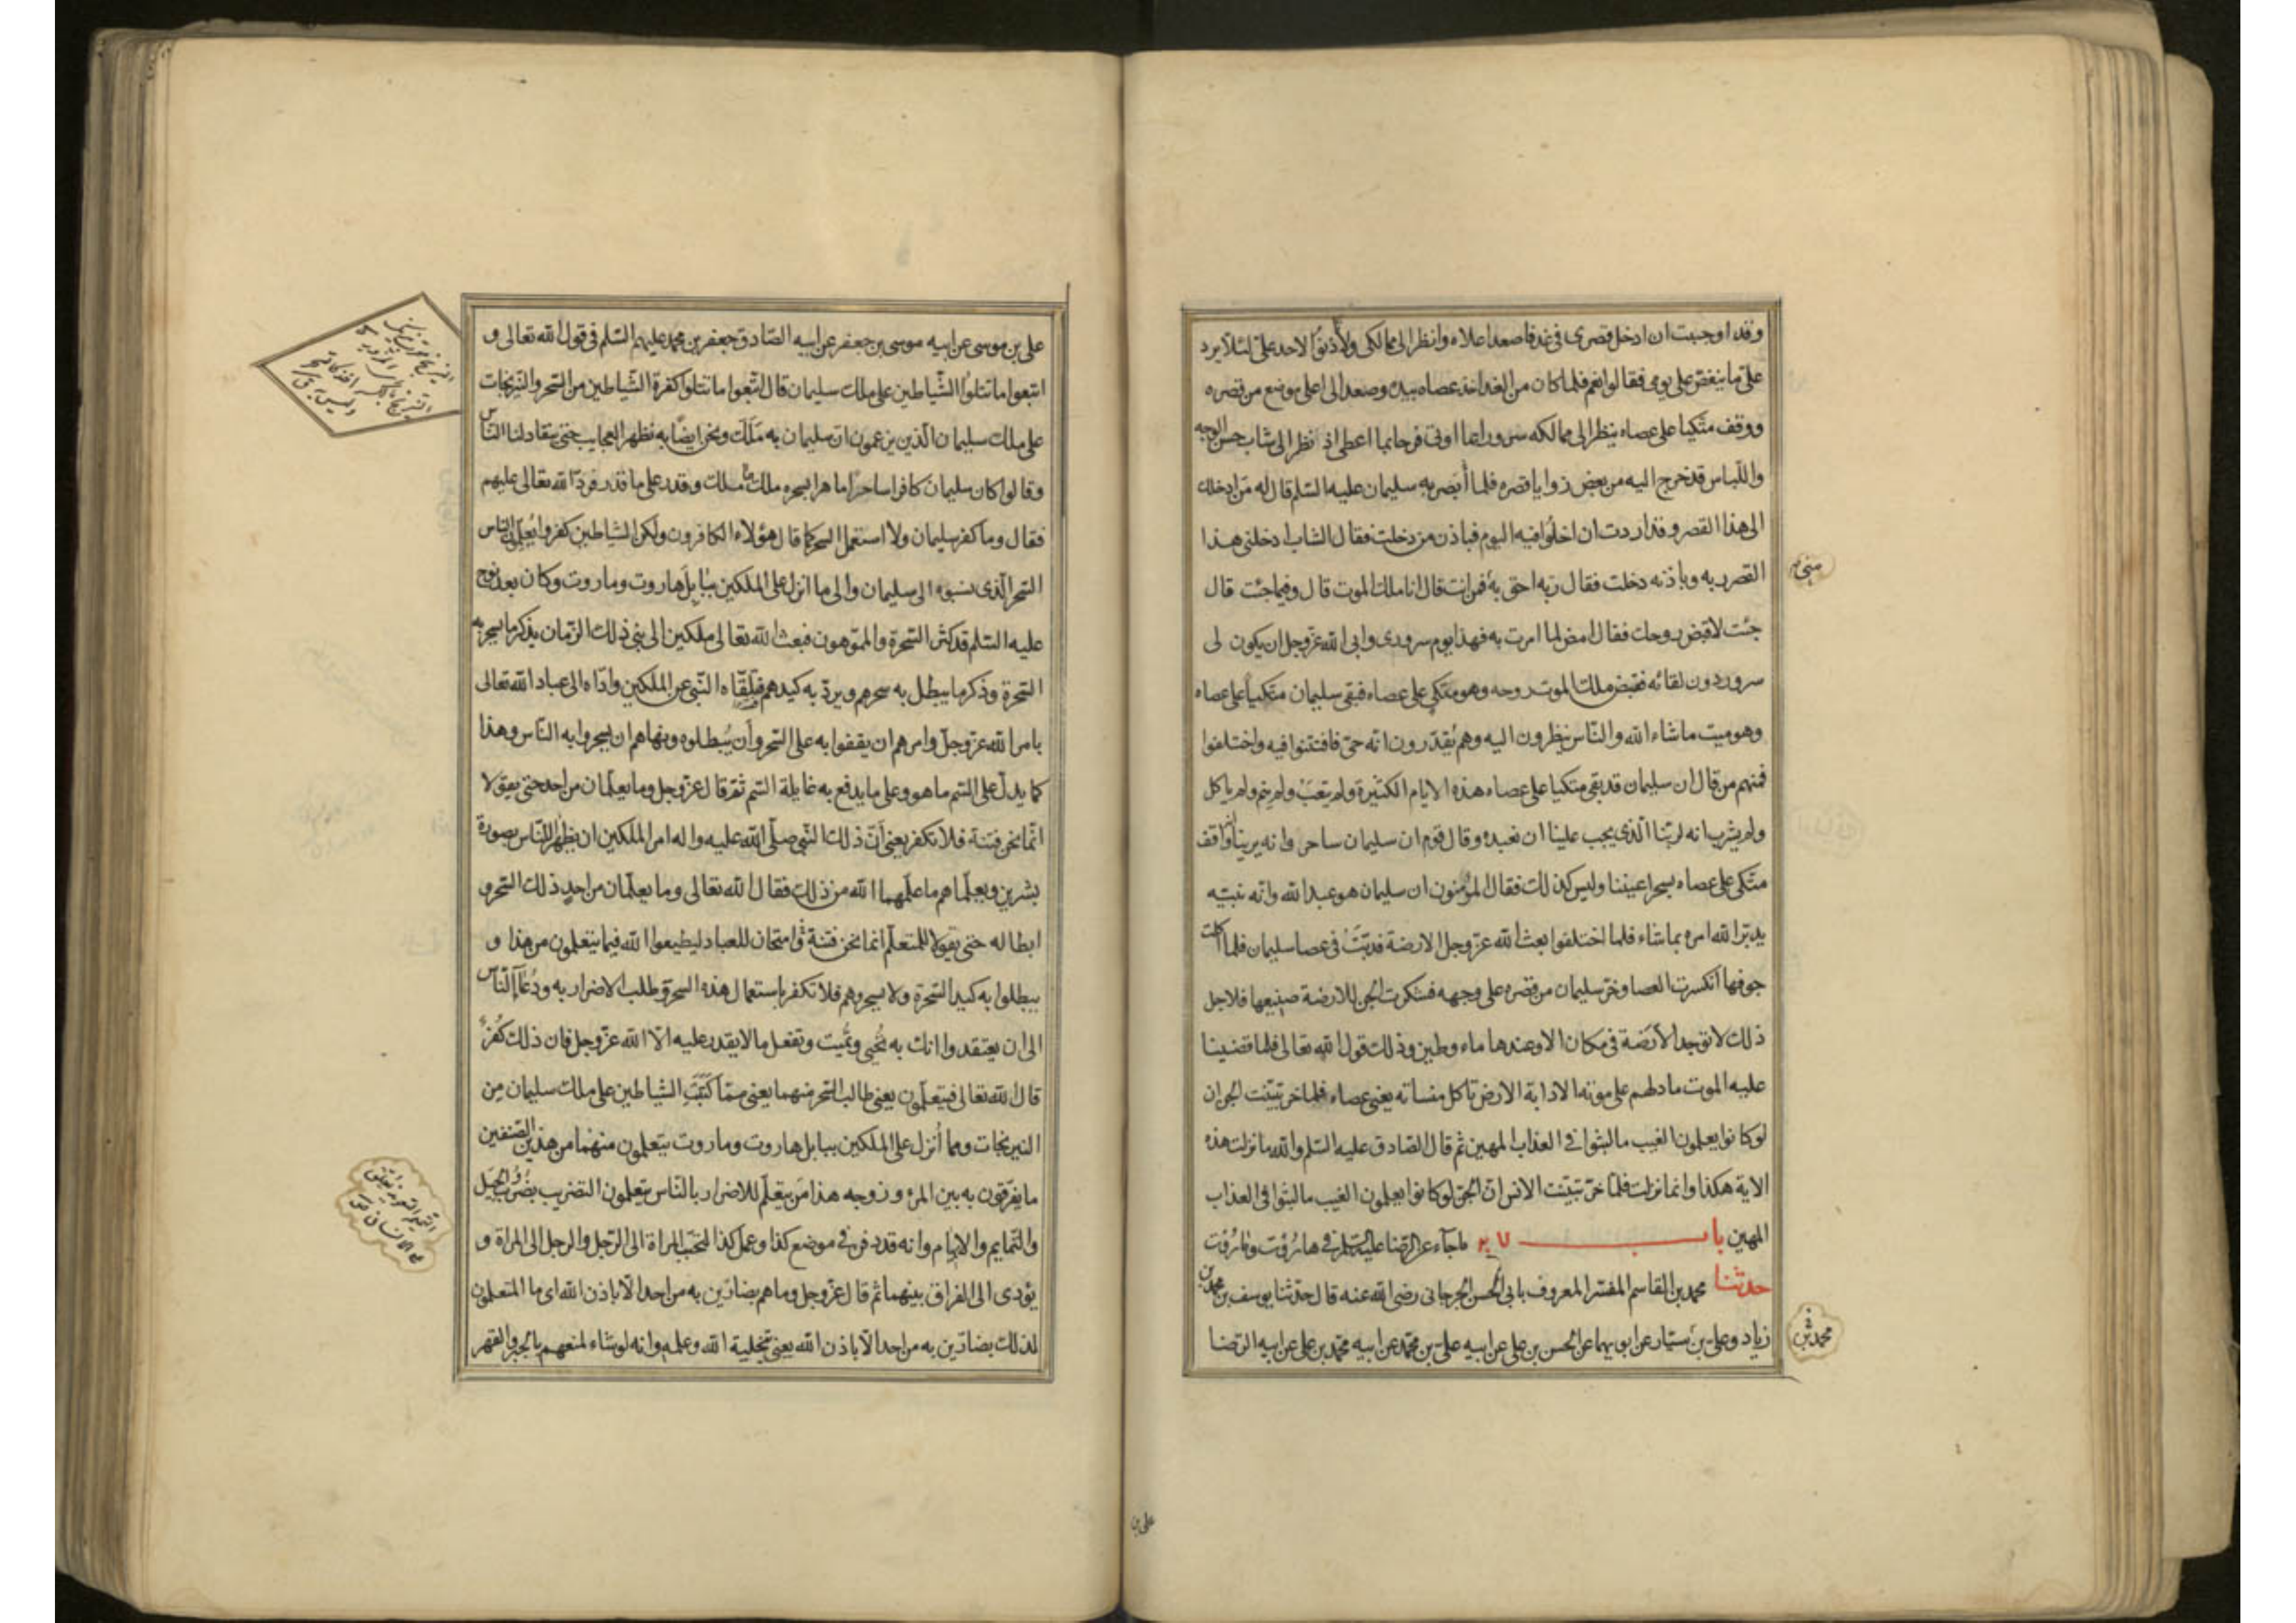 وقد اوجبت ان ادخل قصرى فى غد فاصعد اعلاه وانظر الى ممالكى ولا تأذنوا لاحد على لئلا يرد
على ما ينغص على يومى فقالوا نعم فلما كان من الغد اخذ عصاه بيده وصعد الى اعلى موضع من قصره
ووقف متكيا على عصاه ينظر الى ممالكه سرورا بما اوتى فرحا بما اعطى اذ نظر الى شاب حسن الوجه
واللباس قد خرج اليه من بعض زوايا قصره فلما أبصر به سليمان عليه السلم قال له من ادخلك
الى هذا القصر وقد اردت ان اخلو فيه اليوم فباذن من دخلت فقال الشاب ادخلنى هذا
القصر ربه وباذنه دخلت فقال ربه احق به فمن انت قال انا ملك الموت قال وفيما جئت قال
منى
جئت لاقبض روحك فقال امض لما امرت به فهذا يوم سرورى وابى الله عز وجل ان يكون لى
سرور دون لقائه فقبض ملك الموت روحه وهو متكى على عصاه فبقى سليمان متكيا على عصاه
وهو ميت ما شاء الله والناس ينظرون اليه وهم يقدرون انه حى فافتتنوا فيه واختلفوا
فمنهم من قال ان سليمان قد بقى متكيا على عصاه هذه الايام الكثيرة ولم يتعب ولم ينم ولم ياكل
ولم يشرب انه لربنا الذى يجب علينا ان نعبده وقال قوم ان سليمان ساحر وانه يرينا انه واقف
متكى على عصاه يسحر اعيننا وليس كذلك فقال المؤمنون ان سليمان هو عبد الله وانه نبيه
يدبر الله امره بما شاء فلما اختلفوا بعث الله عز وجل الارضة فدبت فى عصا سليمان فلما اكلت
جوفها انكسرت العصا وخر سليمان من قصره على وجهه فشكرت الجن للارضة صنيعها فلاجل
ذلك لا توجد الأرضة فى مكان الا وعندها ماء وطين وذلك قول الله تعالى فلما قضينا
عليه الموت ما دلهم على موته الا دابة الارض تاكل منساته يعنى عصاه فلما خر تبينت الجن ان
لو كانوا يعلمون الغيب ما لبثوا فى العذاب المهين ثم قال الصادق عليه السلم والله ما نزلت هذه
الاية هكذا وانما نزلت فلما خر تبينت الانس ان الجن لو كانوا يعلمون الغيب ما لبثوا فى العذاب
المهين باب ٢٧ ما جآء عن الرضا عليه السلم فى هاروت وماروت
حدثنا محمد بن القاسم المفسر المعروف بابى الحسن الجرجانى رضى الله عنه قال حدثنا يوسف بن محمد بن
زياد وعلى بن سيار عن ابويهما عن الحسن بن على عن ابيه على بن محمد عن ابيه محمد بن على عن ابيه الرضا
على بن
على بن موسى عن ابيه موسى بن جعفر عن ابيه الصادق جعفر بن محمد عليهم السلم فى قول الله تعالى و
اتبعوا ما تتلوا الشياطين على ملك سليمان قال اتبعوا ما تتلوا كفرة الشياطين من السحر والنيرنجات
على ملك سليمان الذين يزعمون ان سليمان به ملك ونحن ايضا به نظهر العجايب حتى ينقاد لنا الناس
وقالوا كان سليمان كافرا ساحرا ماهرا بسحره ملك ما ملك وقدر على ما قدر فرد الله تعالى عليهم
فقال وما كفر سليمان ولا استعمل السحر كما قال هؤلاء الكافرون ولكن الشياطين كفروا يعلمون الناس
السحر الذى نسبوه الى سليمان والى ما انزل على الملكين ببابل هاروت وماروت وكان بعد نوح
عليه السلم قد كثر السحرة والمموهون فبعث الله تعالى ملكين الى نبى ذلك الزمان بذكر ما يسحر به
السحرة وذكر ما يبطل به سحرهم ويرد به كيدهم فتلقاه النبى عن الملكين واداه الى عباد الله تعالى
بامر الله عز وجل وامرهم ان يقفوا به على السحر وأن يبطلوه ونهاهم ان يسحروا به الناس وهذا
كما يدل على السم ما هو وعلى ما يدفع به غايلة السم ثم قال عز وجل وما يعلمان من احد حتى يقولا
انما نحن فتنة فلا تكفر يعنى أن ذلك النبى صلى الله عليه واله امر الملكين ان يظهرا للناس بصورة
بشرين ويعلماهم ما علمهما الله من ذلك فقال الله تعالى وما يعلمان من احد ذلك السحر و
ابطاله حتى يقولا للمتعلم انما نحن فتنة وامتحان للعباد ليطيعوا الله فيما يتعلمون من هذا و
يبطلوا به كيد السحرة ولا يسحروهم فلا تكفر باستعمال هذه السحر وطلب الاضرار به ودعآء الناس
الى ان يعتقدوا انك به تحيى وتميت وتفعل ما لا يقدر عليه الا الله عز وجل فان ذلك كفر
قال الله تعالى فيتعلمون يعنى طالب السحر منهما يعنى مما كتبت الشياطين على ملك سليمان من
النيرنجات ومما أنزل على الملكين ببابل هاروت وماروت يتعلمون منهما من هذين الصنفين
ما يفرقون به بين المرء وزوجه هذا من يتعلم للاضرار بالناس يتعلمون التضريب بضروب الحيل
والتمايم والايهام وانه قد دفن فى موضع كذا وعمل كذا لتحبب المراة الى الرجل والرجل الى المراة و
يؤدى الى الفراق بينهما ثم قال عز وجل وما هم بضارين به من احد الا باذن الله اى ما المتعلمون
لذلك بضارين به من احد الا باذن الله يعنى بتخلية الله وعلمه وانه لو شاء لمنعهم بالجبر والقهر